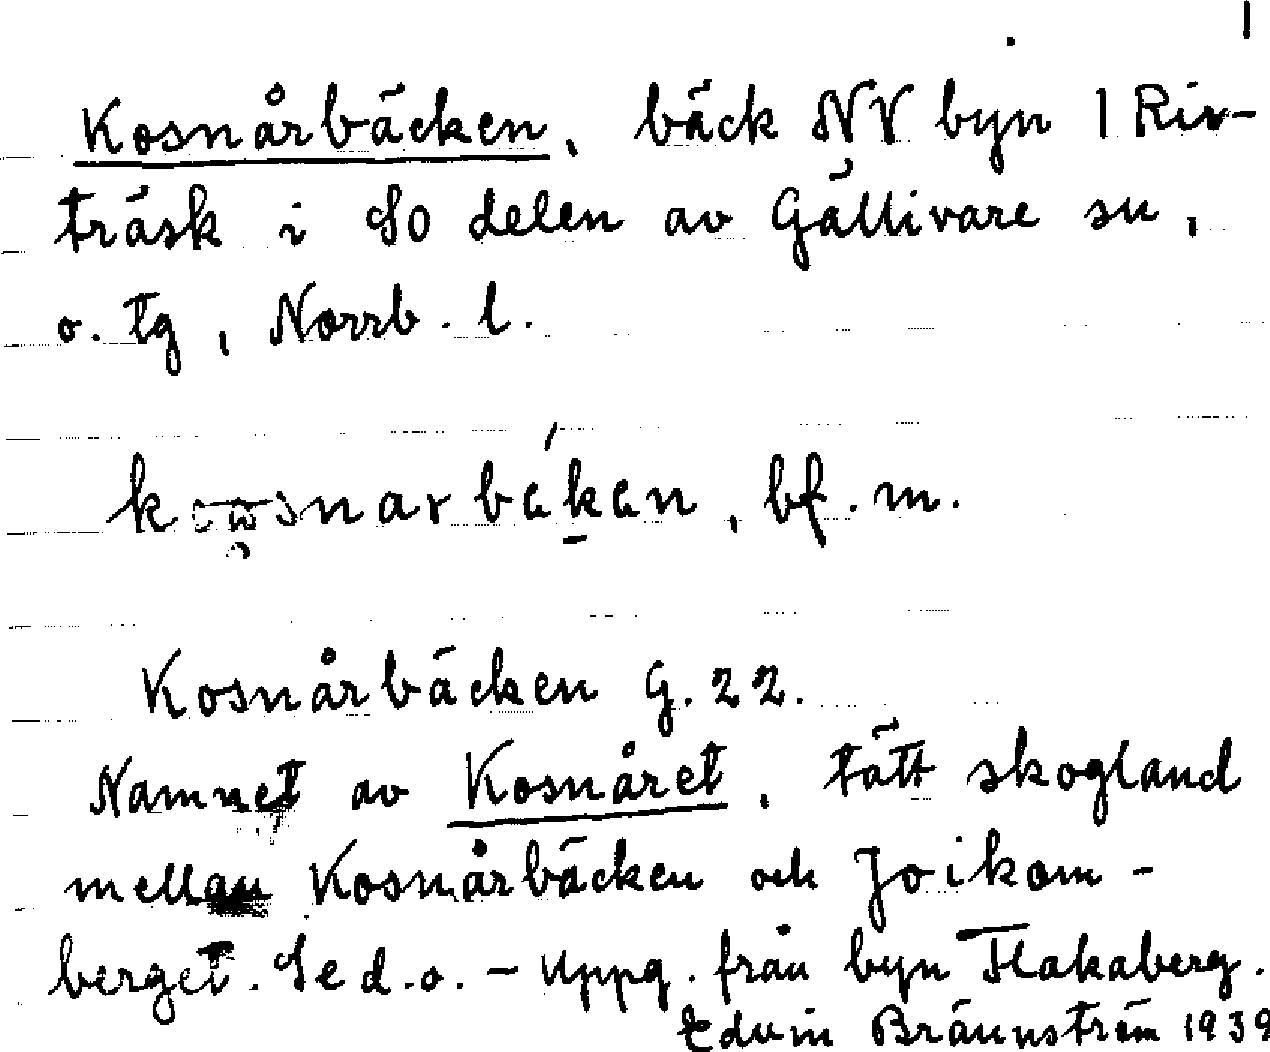 1
Kosnårbäcken, bäck NV byn 1 Riv-
träsk i SO delen av Gällivare sn,
o. tg, Norrb. l.
bf. m.
Kosnårbäcken G. 22.
Namnet av Kosnåret, tätt skogland
mellan Kosnårbäcken och Joikom-
berget. Se d. o. - Uppg. från byn Flakaberg.
Edvin Brännström 1939